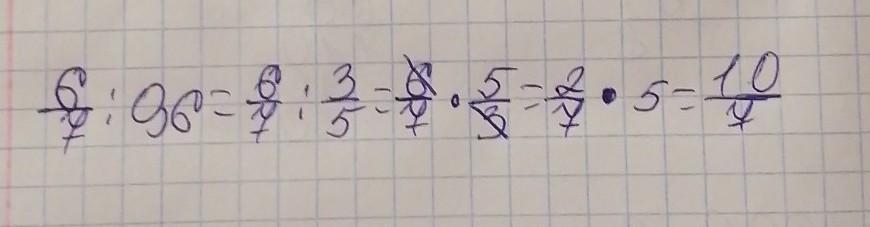 6/7 : 96 = 6/7 : 3/5 = 6/7 · 5/3 = 2/7 · 5 = 10/7